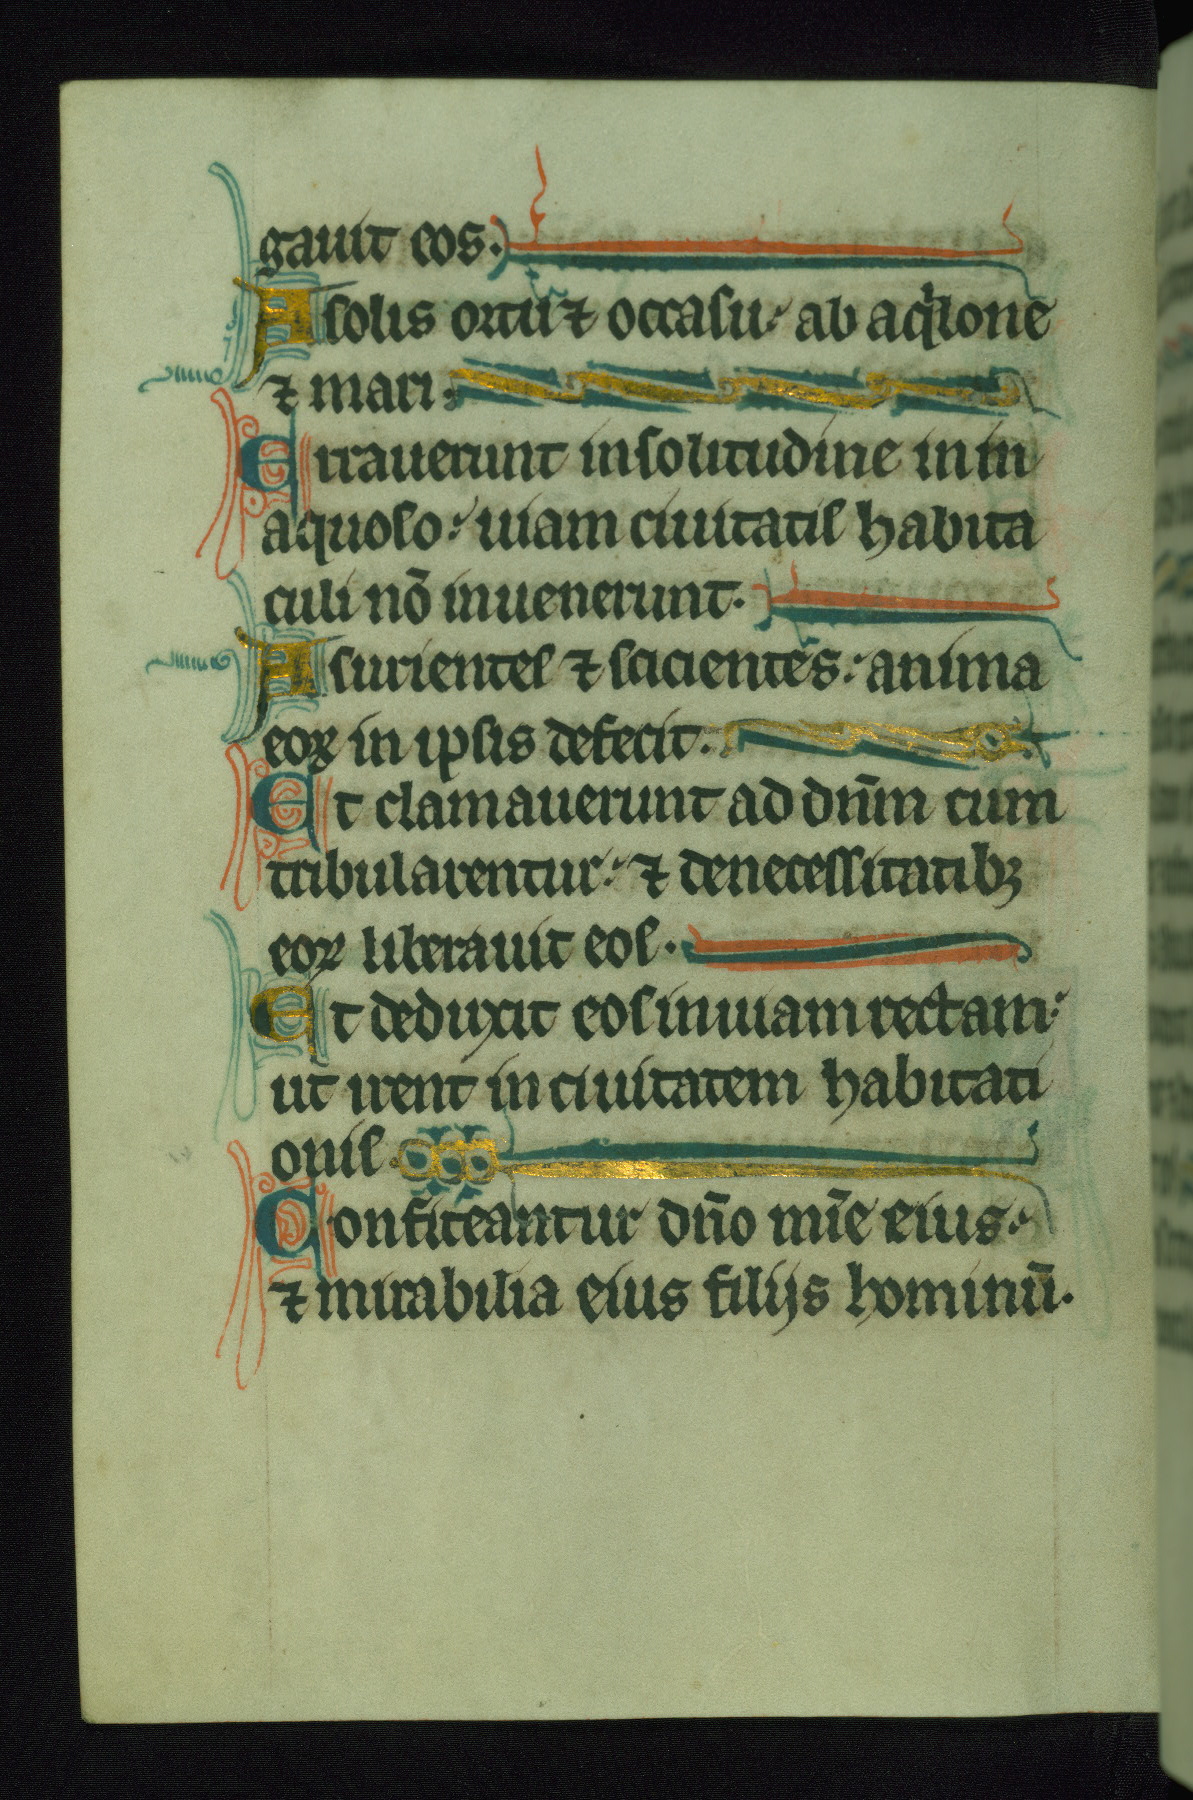 gauit eos.
A solis ortu ⁊ occasu: ab aq̇lone
⁊ mari.
Errauerunt in solitudine in in
aquoso: uiam ciuitatis habita
culi nō inuenerunt.
Asurientes ⁊ scicientes: anima
eoꝝ in ipsis defecit.
Et clamauerunt ad dn̄m cum
tribularentur: ⁊ de necessitatibꝫ
eoꝝ liberauit eos.
Et deduxit eos in uiam rectam:
ut irent in ciuitatem habitati
onis
Confiteantur dn̄o mīe eius:
⁊ mirabilia eius filijs hominū.